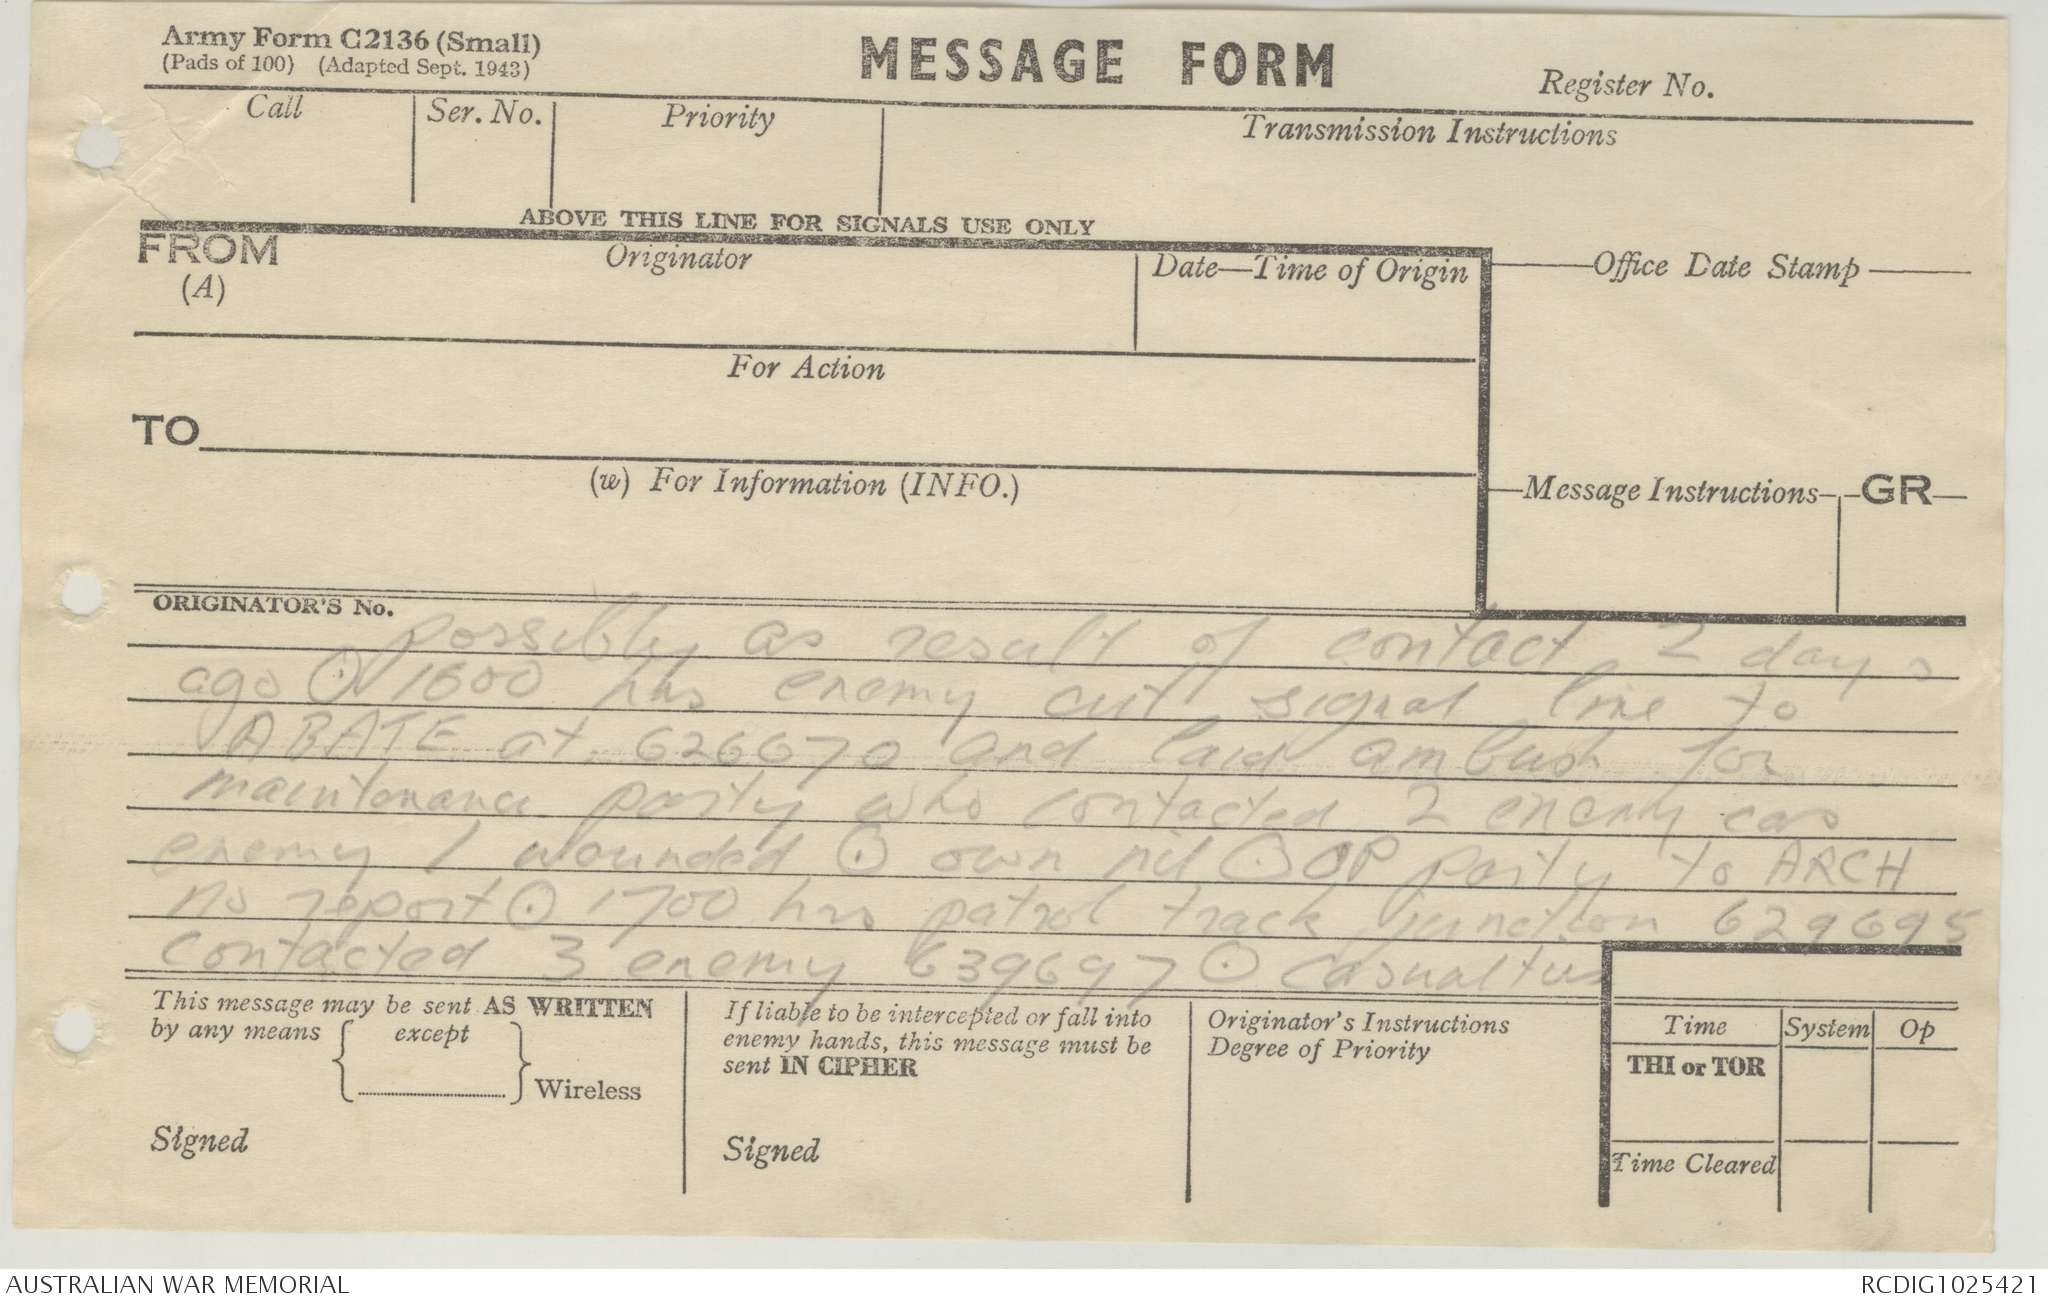 Army Form C2136 (Small)
(Pads of 100) (Adapted Sept. 1943)
MESSAGE FORM
Register No.
Call
Ser. No.
Priority
Transmission Instructions
ABOVE THIS LINE FOR SIGNALS USE ONLY
FROM
(A)
Originator
Date—Time of Origin
Office Date Stamp
For Action
TO
(w) For Information (INFO.)
Message Instructions
GR
ORIGINATOR'S No.
possibly as result of contact 2 days
ago ⊙ 1600 hrs enemy cut signal line to
ABATE at 626670 and laid ambush for
maintenance party who contacted 2 enemy cas
enemy 1 wounded ⊙ own nil ⊙ OP party to ARCH
no report ⊙ 1700 hrs patrol track junction 629695
contacted 3 enemy 639697 ⊙ Casualties
This message may be sent AS WRITTEN
by any means
except
Wireless
Signed
If liable to be intercepted or fall into
enemy hands, this message must be
sent IN CIPHER
Signed
Originator's Instructions
Degree of Priority
Time
System
Op
THI or TOR
Time Cleared
AUSTRALIAN WAR MEMORIAL
RCDIG1025421